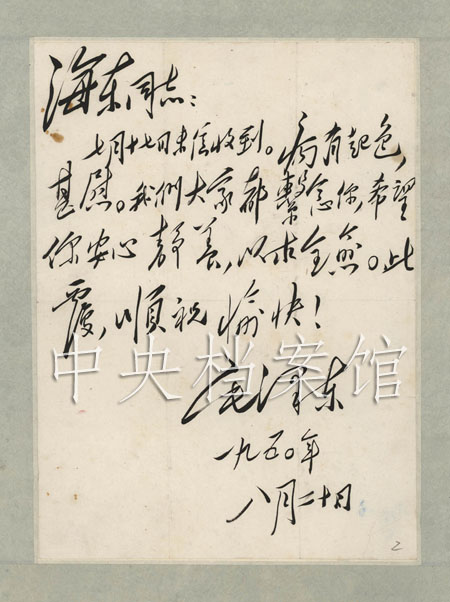 海东同志：
七月十七日来信收到。病有起色，
甚慰。我们大家都繫念你，希望
你安心静养，以求全愈。此
覆，顺祝愉快！
毛泽东
一九五〇年
八月二十日
中央档案馆
2